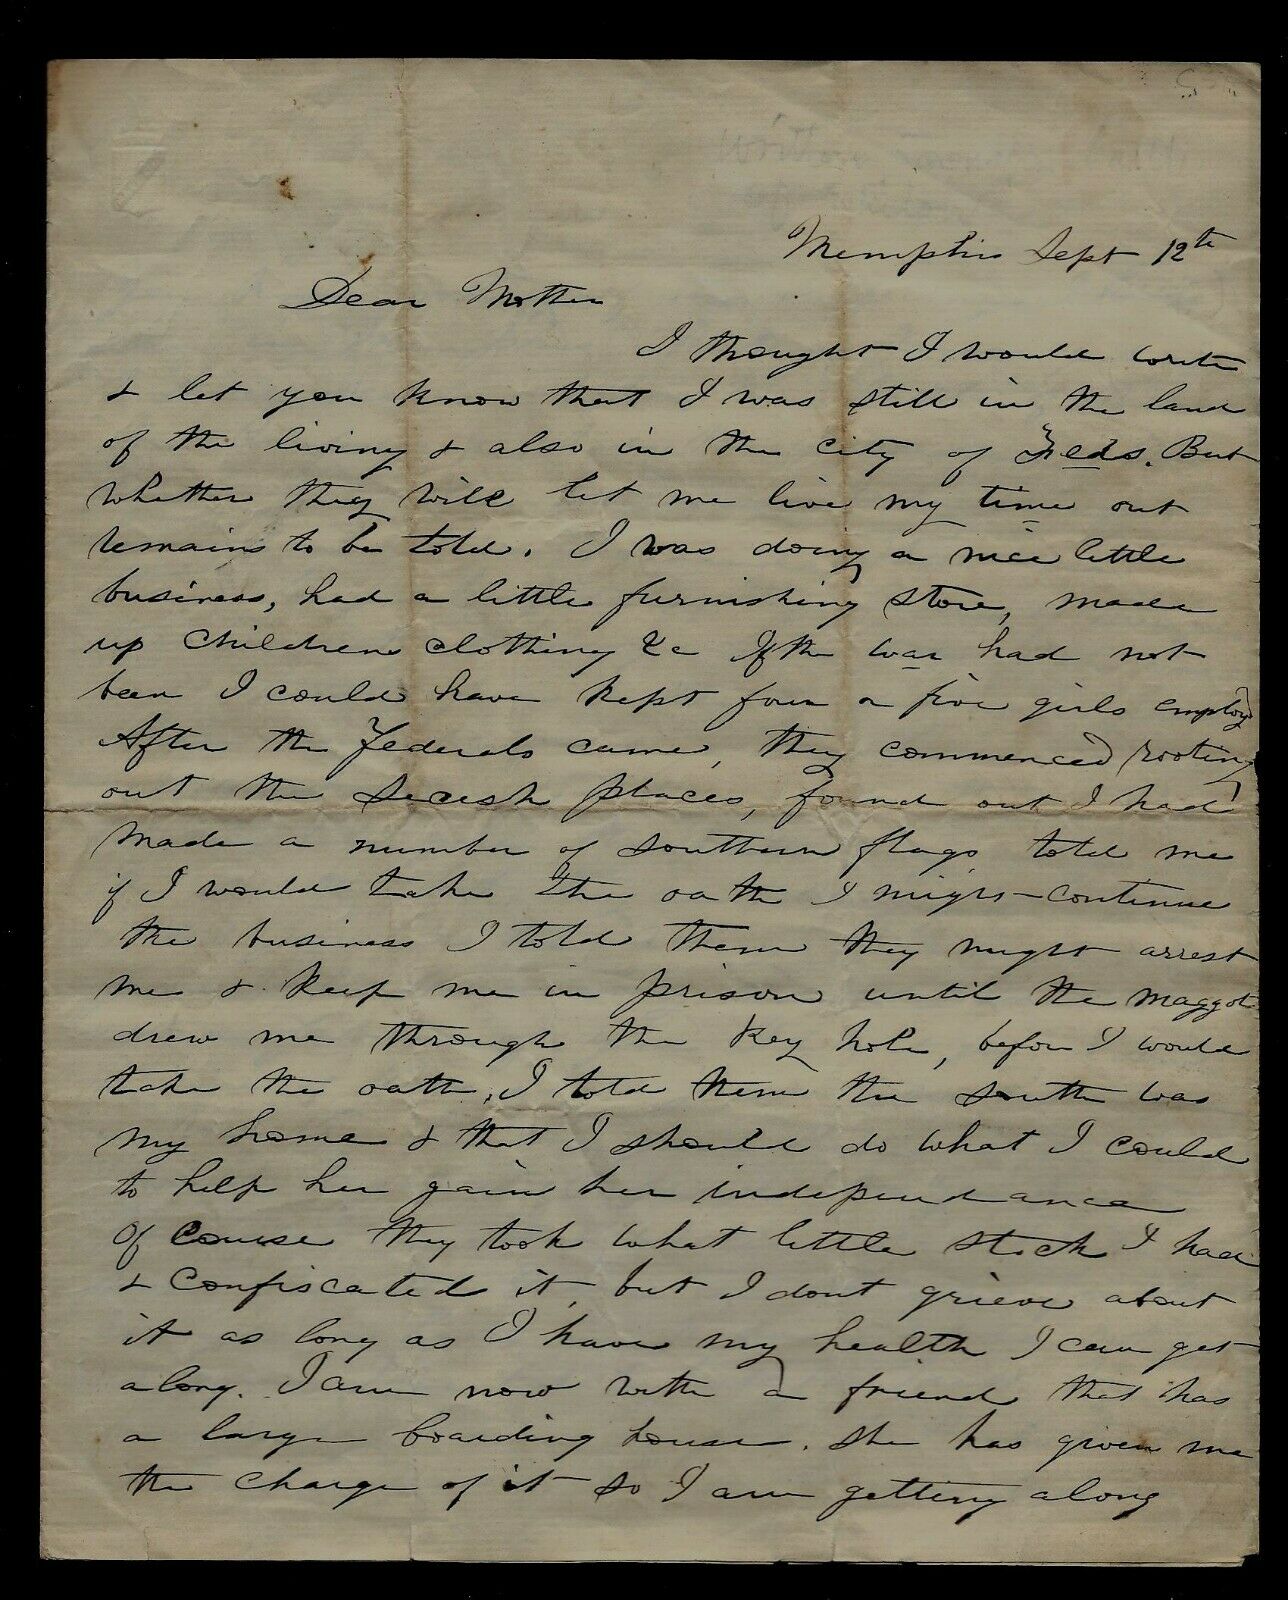 Memphis Sept 12th
Dear Mother
I thought I would write
& let you know that I was still in the land
of the living & also in the city of Feds. But
whether they will let me live my time out
remains to be told. I was doing a nice little
business, had a little furnishing store, made
up childrens clothing &c If the war had not
been I could have kept four or five girls employd
After the Federals came, they commenced rooting
out the Secesh places, found out I had
made a number of southern flags told me
if I would take the oath I might continue
the business I told them they might arrest
me & keep me in prison until the maggots
drew me through the key hole, before I would
take the oath, I told them the south was
my home & that I should do what I could
to help her gain her independance
Of course they took what little stock I had
& confiscated it, but I dont grieve about
it as long as I have my health I can get
along. I am now with a friend that has
a large boarding house. She has given me
the charge of it so I am getting along